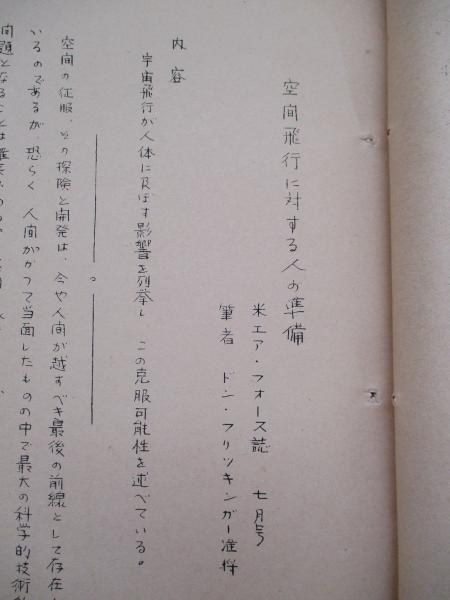 空間飛行に対する人の準備
米エア・フォース誌 七月号
筆者 ドン・フリッキンガー准将
内容
宇宙飛行が人体に及ぼす影響を列挙し この克服可能性を述べている。
空間の征服、その探険と開発は、今や人間が越すべき最後の前線として存在し
いるのであるが、恐らく人間がかつて当面したものの中で最大の科学的技術的
問題となることは確実